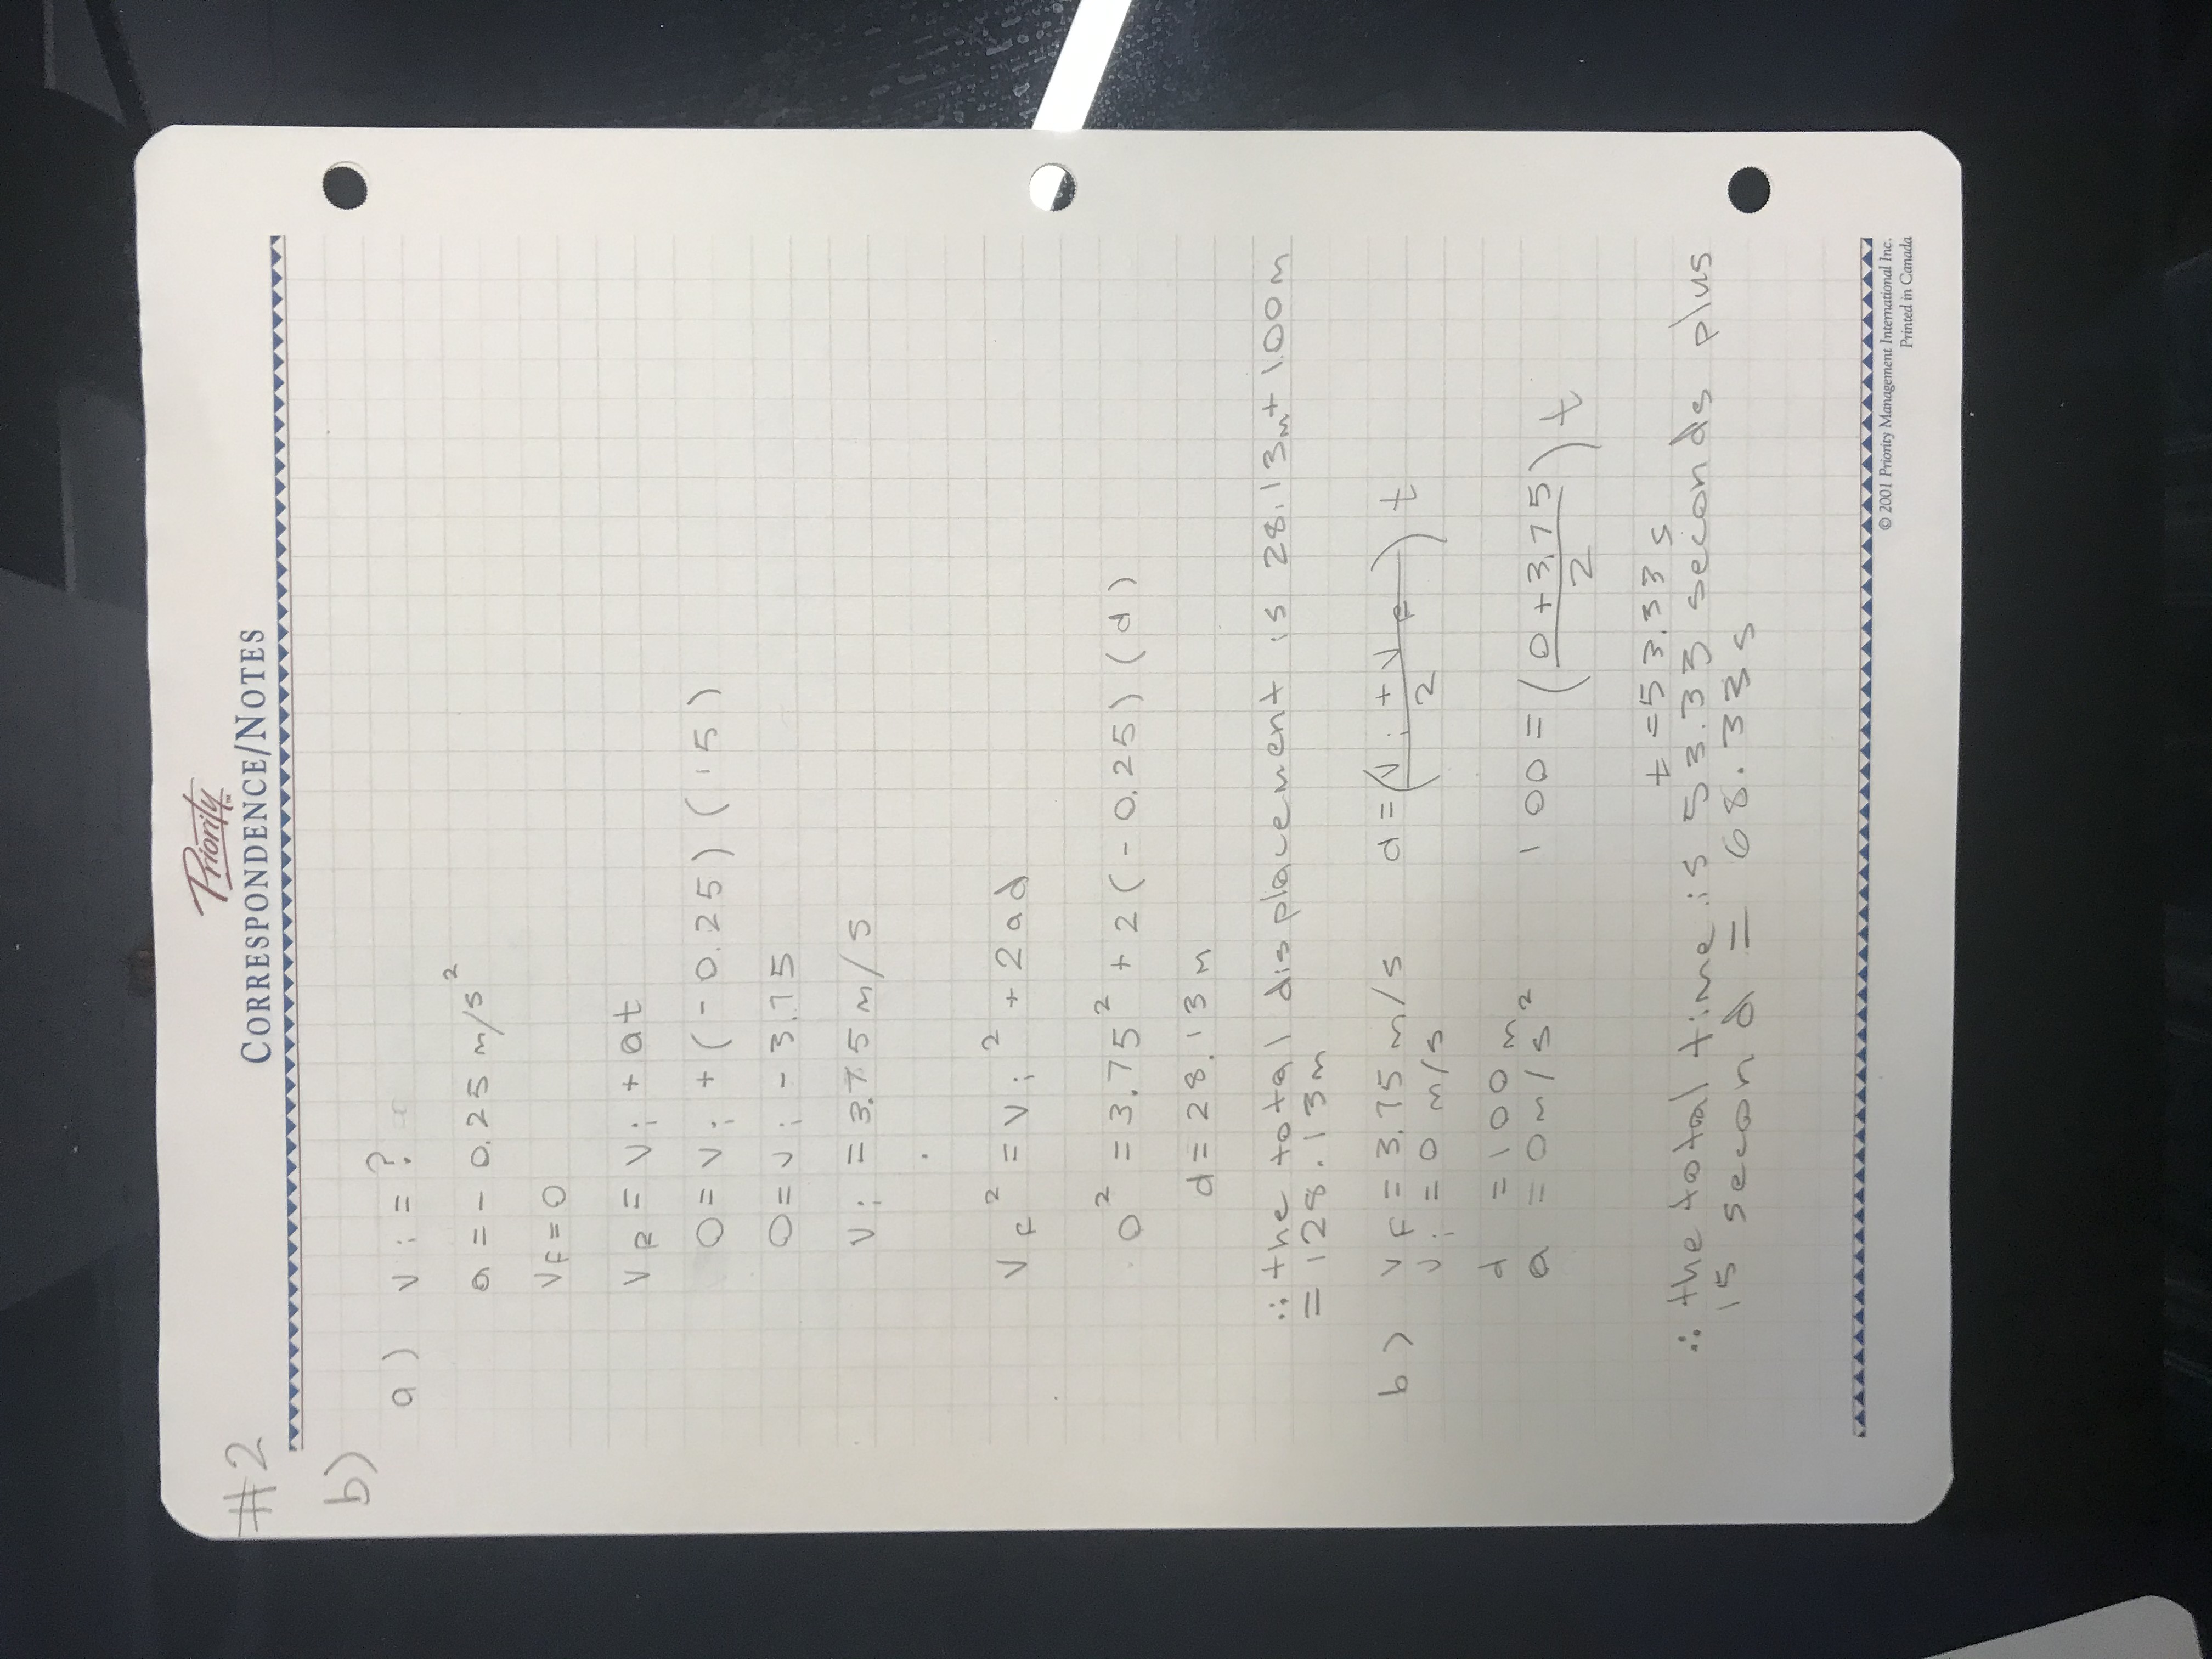 Priority™
CORRESPONDENCE/NOTES
#2
b)
a) vi = ?
a = - 0.25 m/s²
VF = 0
VF = Vi + at
0 = Vi + (-0.25) (15)
0 = Vi - 3.75
Vi = 3.75 m/s
VF² = Vi² + 2ad
0² = 3.75² + 2(-0.25) (d)
d = 28.13 m
∴ the total displacement is 28.13m + 100m
= 128.13m
b) VF = 3.75 m/s
Vi = 0 m/s
d = 100 m
a = 0 m/s²
d = (Vi + VF / 2) t
100 = (0 + 3.75 / 2) t
t = 53.33 s
∴ the total time is 53.33 seconds plus
15 second = 68.33s
© 2001 Priority Management International Inc.
Printed in Canada